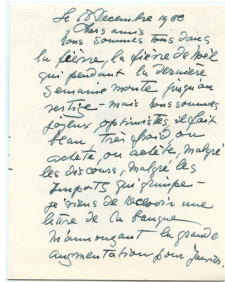 Le 18 Decembre 1988
Chers amis
Nous sommes tous dans
la fièvre, la fièvre de Noël
qui pendant la dernière
semaine monte jusqu'au
vertige - mais nous sommes
joyeux optimistes il fait
beau très froid on
achète, on achète, malgré
les discours, malgré les
Impots qui grimpe -
je viens de recevoir une
lettre de la banque
m'annonçant la grande
augmentation pour Janvier.